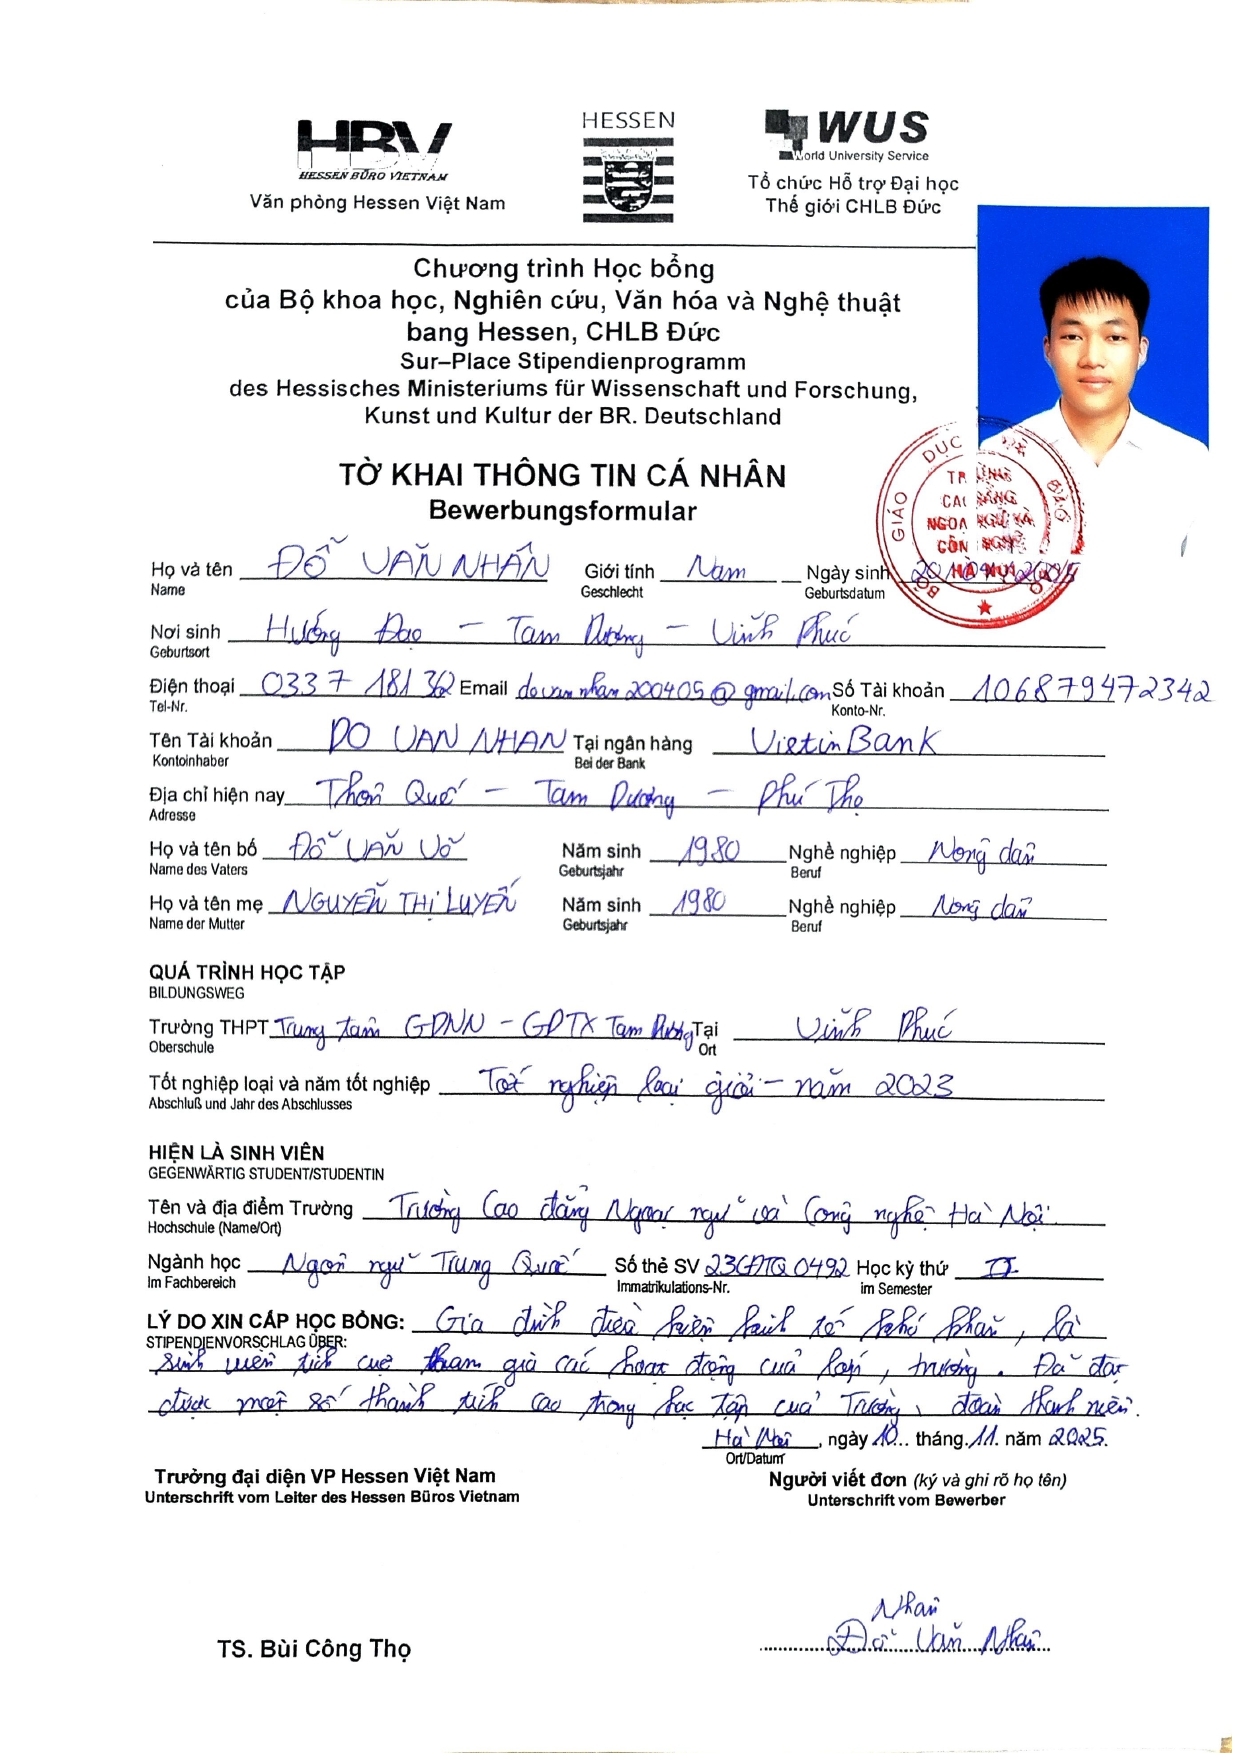 HBV
HESSEN BÜRO VIETNAM
Văn phòng Hessen Việt Nam
HESSEN
WUS
World University Service
Tổ chức Hỗ trợ Đại học
Thế giới CHLB Đức
Chương trình Học bổng
của Bộ khoa học, Nghiên cứu, Văn hóa và Nghệ thuật
bang Hessen, CHLB Đức
Sur–Place Stipendienprogramm
des Hessisches Ministeriums für Wissenschaft und Forschung,
Kunst und Kultur der BR. Deutschland
TỜ KHAI THÔNG TIN CÁ NHÂN
Bewerbungsformular
BỘ GIÁO DỤC VÀ ĐÀO TẠO
TRƯỜNG
CAO ĐẲNG
NGOẠI NGỮ VÀ
CÔNG NGHỆ
HÀ NỘI
Họ và tên ĐỖ VĂN NHÂN Giới tính Nam Ngày sinh
Name Geschlecht Geburtsdatum
Nơi sinh Hướng Đạo – Tam Dương – Vĩnh Phúc
Geburtsort
Điện thoại 0337 181 362 Email dovannhan200405@gmail.com Số Tài khoản 106879472342
Tel-Nr. Konto-Nr.
Tên Tài khoản DO VAN NHAN Tại ngân hàng VietinBank
Kontoinhaber Bei der Bank
Địa chỉ hiện nay Thôn Quế – Tam Dương – Phú Thọ
Adresse
Họ và tên bố ĐỖ VĂN VÕ Năm sinh 1980 Nghề nghiệp Nông dân
Name des Vaters Geburtsjahr Beruf
Họ và tên mẹ NGUYỄN THỊ LUYẾN Năm sinh 1980 Nghề nghiệp Nông dân
Name der Mutter Geburtsjahr Beruf
QUÁ TRÌNH HỌC TẬP
BILDUNGSWEG
Trường THPT Trung tâm GDNN – GDTX Tam Dương Tại Vĩnh Phúc
Oberschule Ort
Tốt nghiệp loại và năm tốt nghiệp Tốt nghiệp loại giỏi – năm 2023
Abschluß und Jahr des Abschlusses
HIỆN LÀ SINH VIÊN
GEGENWÄRTIG STUDENT/STUDENTIN
Tên và địa điểm Trường Trường Cao đẳng Ngoại ngữ và Công nghệ Hà Nội.
Hochschule (Name/Ort)
Ngành học Ngôn ngữ Trung Quốc Số thẻ SV 23CĐTQ0492 Học kỳ thứ II
Im Fachbereich Immatrikulations-Nr. im Semester
LÝ DO XIN CẤP HỌC BỔNG: Gia đình điều kiện kinh tế khó khăn, là
STIPENDIENVORSCHLAG ÜBER:
sinh viên tích cực tham gia các hoạt động của lớp, trường. Đã đạt
được một số thành tích cao trong học tập của Trường, đoàn thanh niên.
Hà Nội, ngày 10... tháng.11. năm 2025.
Ort/Datum
Trưởng đại diện VP Hessen Việt Nam
Unterschrift vom Leiter des Hessen Büros Vietnam
Người viết đơn (ký và ghi rõ họ tên)
Unterschrift vom Bewerber
Nhân
TS. Bùi Công Thọ
Đỗ Văn Nhân